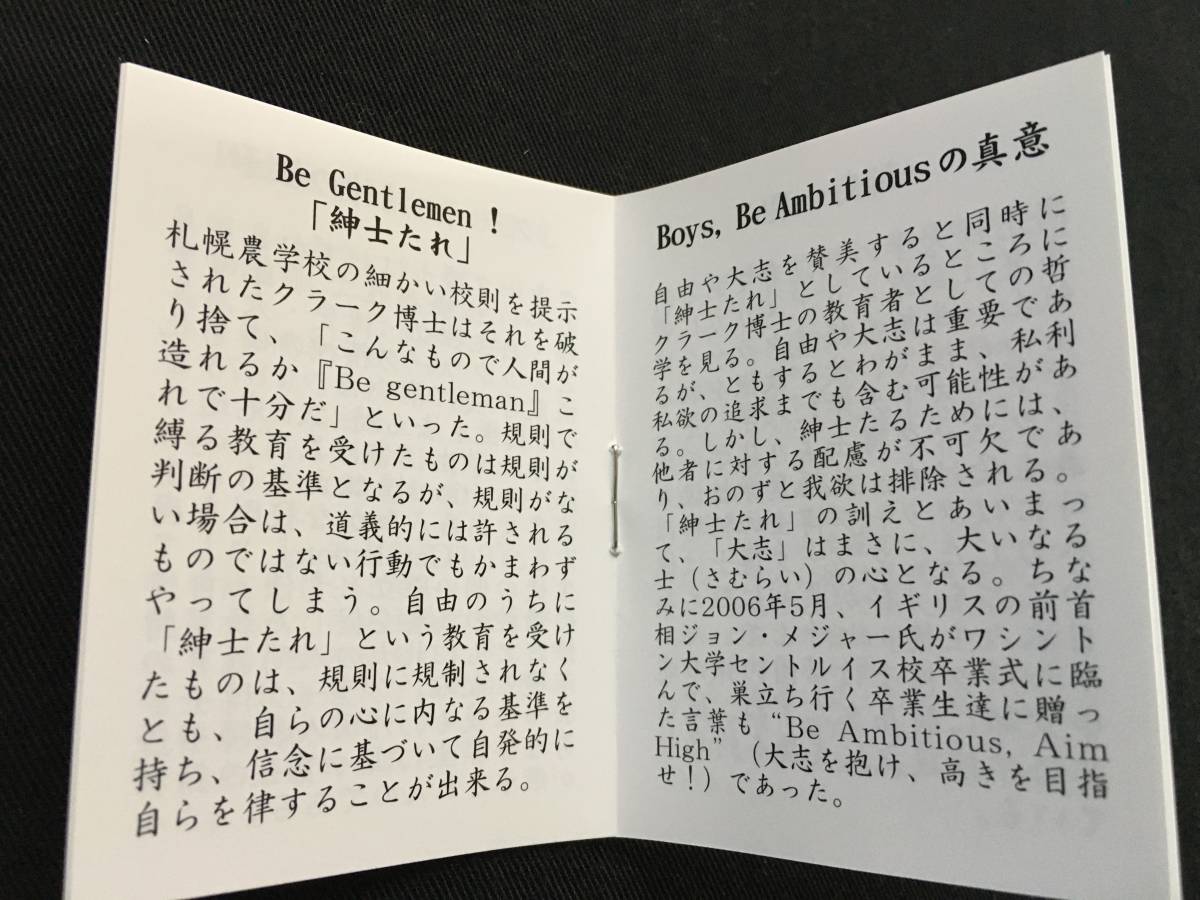 Be Gentlemen！
「紳士たれ」
札幌農学校の細かい校則を提示
されたクラーク博士はそれを破
り捨て、「こんなもので人間が
造れるか『Be gentleman』こ
れで十分だ」といった。規則で
縛る教育を受けたものは規則が
判断の基準となるが、規則がな
い場合は、道義的には許される
ものではない行動でもかまわず
やってしまう。自由のうちに
「紳士たれ」という教育を受け
たものは、規則に規制されなく
とも、自らの心に内なる基準を
持ち、信念に基づいて自発的に
自らを律することが出来る。
Boys, Be Ambitiousの真意
自由や大志を賛美すると同時に
「紳士たれ」としているところに
クラーク博士の教育者としての哲
学を見る。自由や大志は重要であ
るが、ともするとわがまま、私利
私欲の追求までも含む可能性があ
る。しかし、紳士たるためには、
他者に対する配慮が不可欠であ
り、おのずと我欲は排除される。
「紳士たれ」の訓えとあいまっ
て、「大志」はまさに、大いなる
士（さむらい）の心となる。ちな
みに2006年5月、イギリスの前首
相ジョン・メジャー氏がワシント
ン大学セントルイス校卒業式に臨
んで、巣立ち行く卒業生達に贈っ
た言葉も “Be Ambitious, Aim
High”（大志を抱け、高きを目指
せ！）であった。